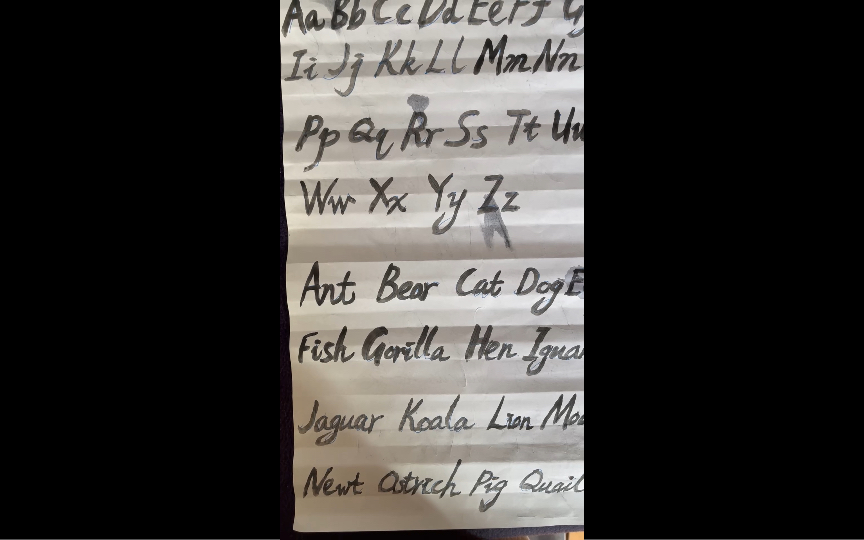 Aa Bb Cc Dd Ee Ff G
Ii Jj Kk Ll Mm Nn
Pp Qq Rr Ss Tt Uu
Ww Xx Yy Zz
Ant Bear Cat Dog E
Fish Gorilla Hen Igua
Jaguar Koala Lion Moo
Newt Ostrich Pig Quail